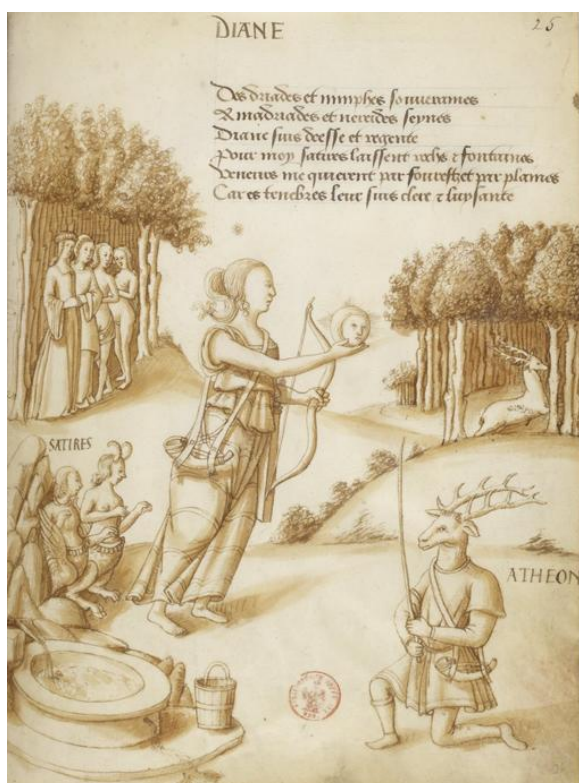 DIANE
25
Des driades et nimphes souveraines
Amadriades et nereides seynes
Diane suis deesse et regente
Pour moy satires laissent rochs & fontaines
Veneurs me quierent par fourestz et par plaines
Car es tenebres leur suis clere & luysante
SATIRES
ATHEON